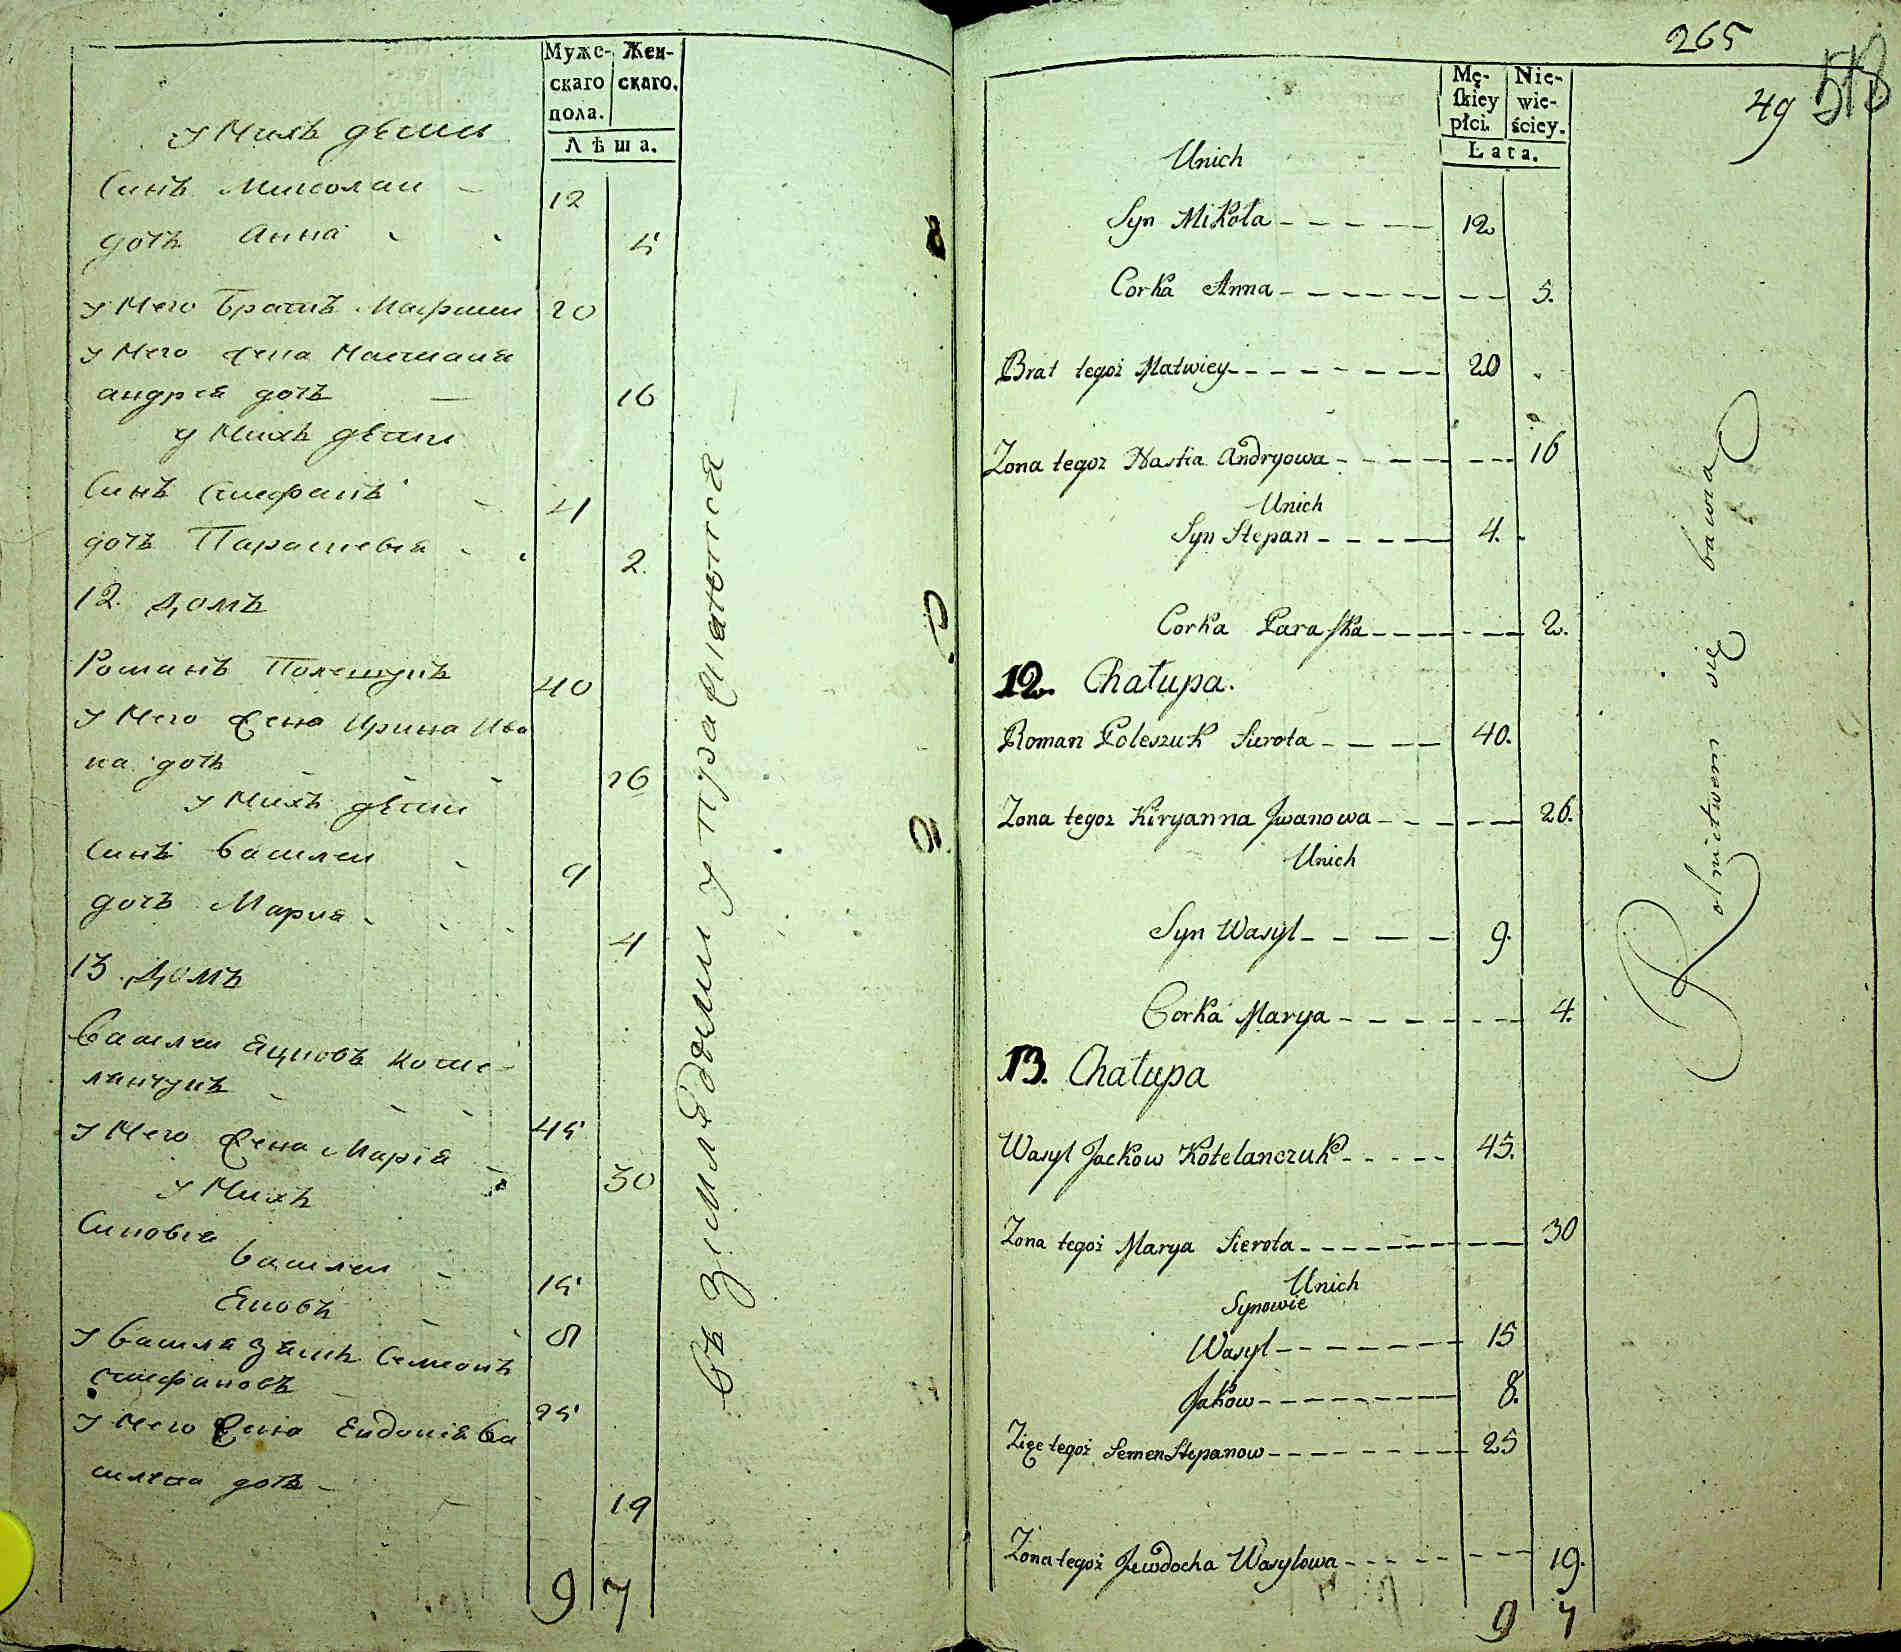 Муже-
скаго
пола.
Жен-
скаго.
Лѣта.
у Нихъ дѣти
Синъ Миколаи 12
дочъ Анна 5
у Него братъ Матфии 20
у Него жена Настасия
андрея дочъ 16
у Нихъ дѣти
Синъ Стефанъ 4
дочъ Парасневия 2.
12. Домъ
Романъ Полещукъ 40
у Него жена Ирина Ива
на дочъ 26
у Нихъ дѣти
Синъ Василеи 9
дочъ Мария 4
13 Домъ
Василеи Яцковъ Коте-
ланчукъ 45
у Него жена Мария 30
у Нихъ
Синовья
Василеи 15
Яковъ 8
у Василя зять Семионъ
Стефановъ 25
у Него жена Евдокия Ва
силева дочъ 19
9 7
въ
упражнаются
265
49
Mę-
skiey
płci.
Nie-
wie-
ściey.
Lata.
Unich
Syn Mikoła 12
Corka Anna 5.
Brat tegoż Matwiey 20
Zona tegoz Nastia Andryowa 16
Unich
Syn Stepan 4.
Corka Paraska 2.
12. Chałupa.
Roman Poleszuk Sierota 40.
Zona tegoz Kiryanna Jwanowa 26.
Unich
Syn Wasyl 9.
Corka Marya 4.
13. Chałupa
Wasyl Jackow Kotelanczuk 45.
Zona tegoż Marya Sierota 30
Unich
Synowie
Wasyl 15
Jakow 8.
Zięc tegoż Semen Stepanow 25
Zona tegoż Jewdocha Wasylowa 19.
9 7
Rolnictwem się bawią